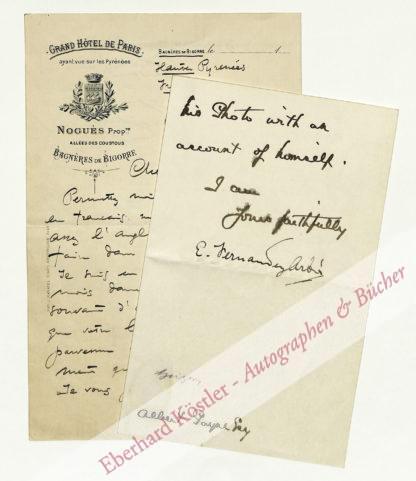 GRAND HÔTEL DE PARIS
ayant vue sur les Pyrénées
NOGUÈS Prop.re
ALLÉES DES COUSTOUS
BAGNÈRES DE BIGORRE
BAGNÈRES DE BIGORRE, le 1
Hautes Pyrénées
Permettez moi
en français
assez l'Angl
faire dans
Je suis en
mois dans
souvent d'
que votre
parvenu
Je vous
his Photo with an
account of himself.
I am
Yours faithfully
E. Fernandez Arbós
Albert Payne Esq
Eberhard Köstler - Autographen & Bücher